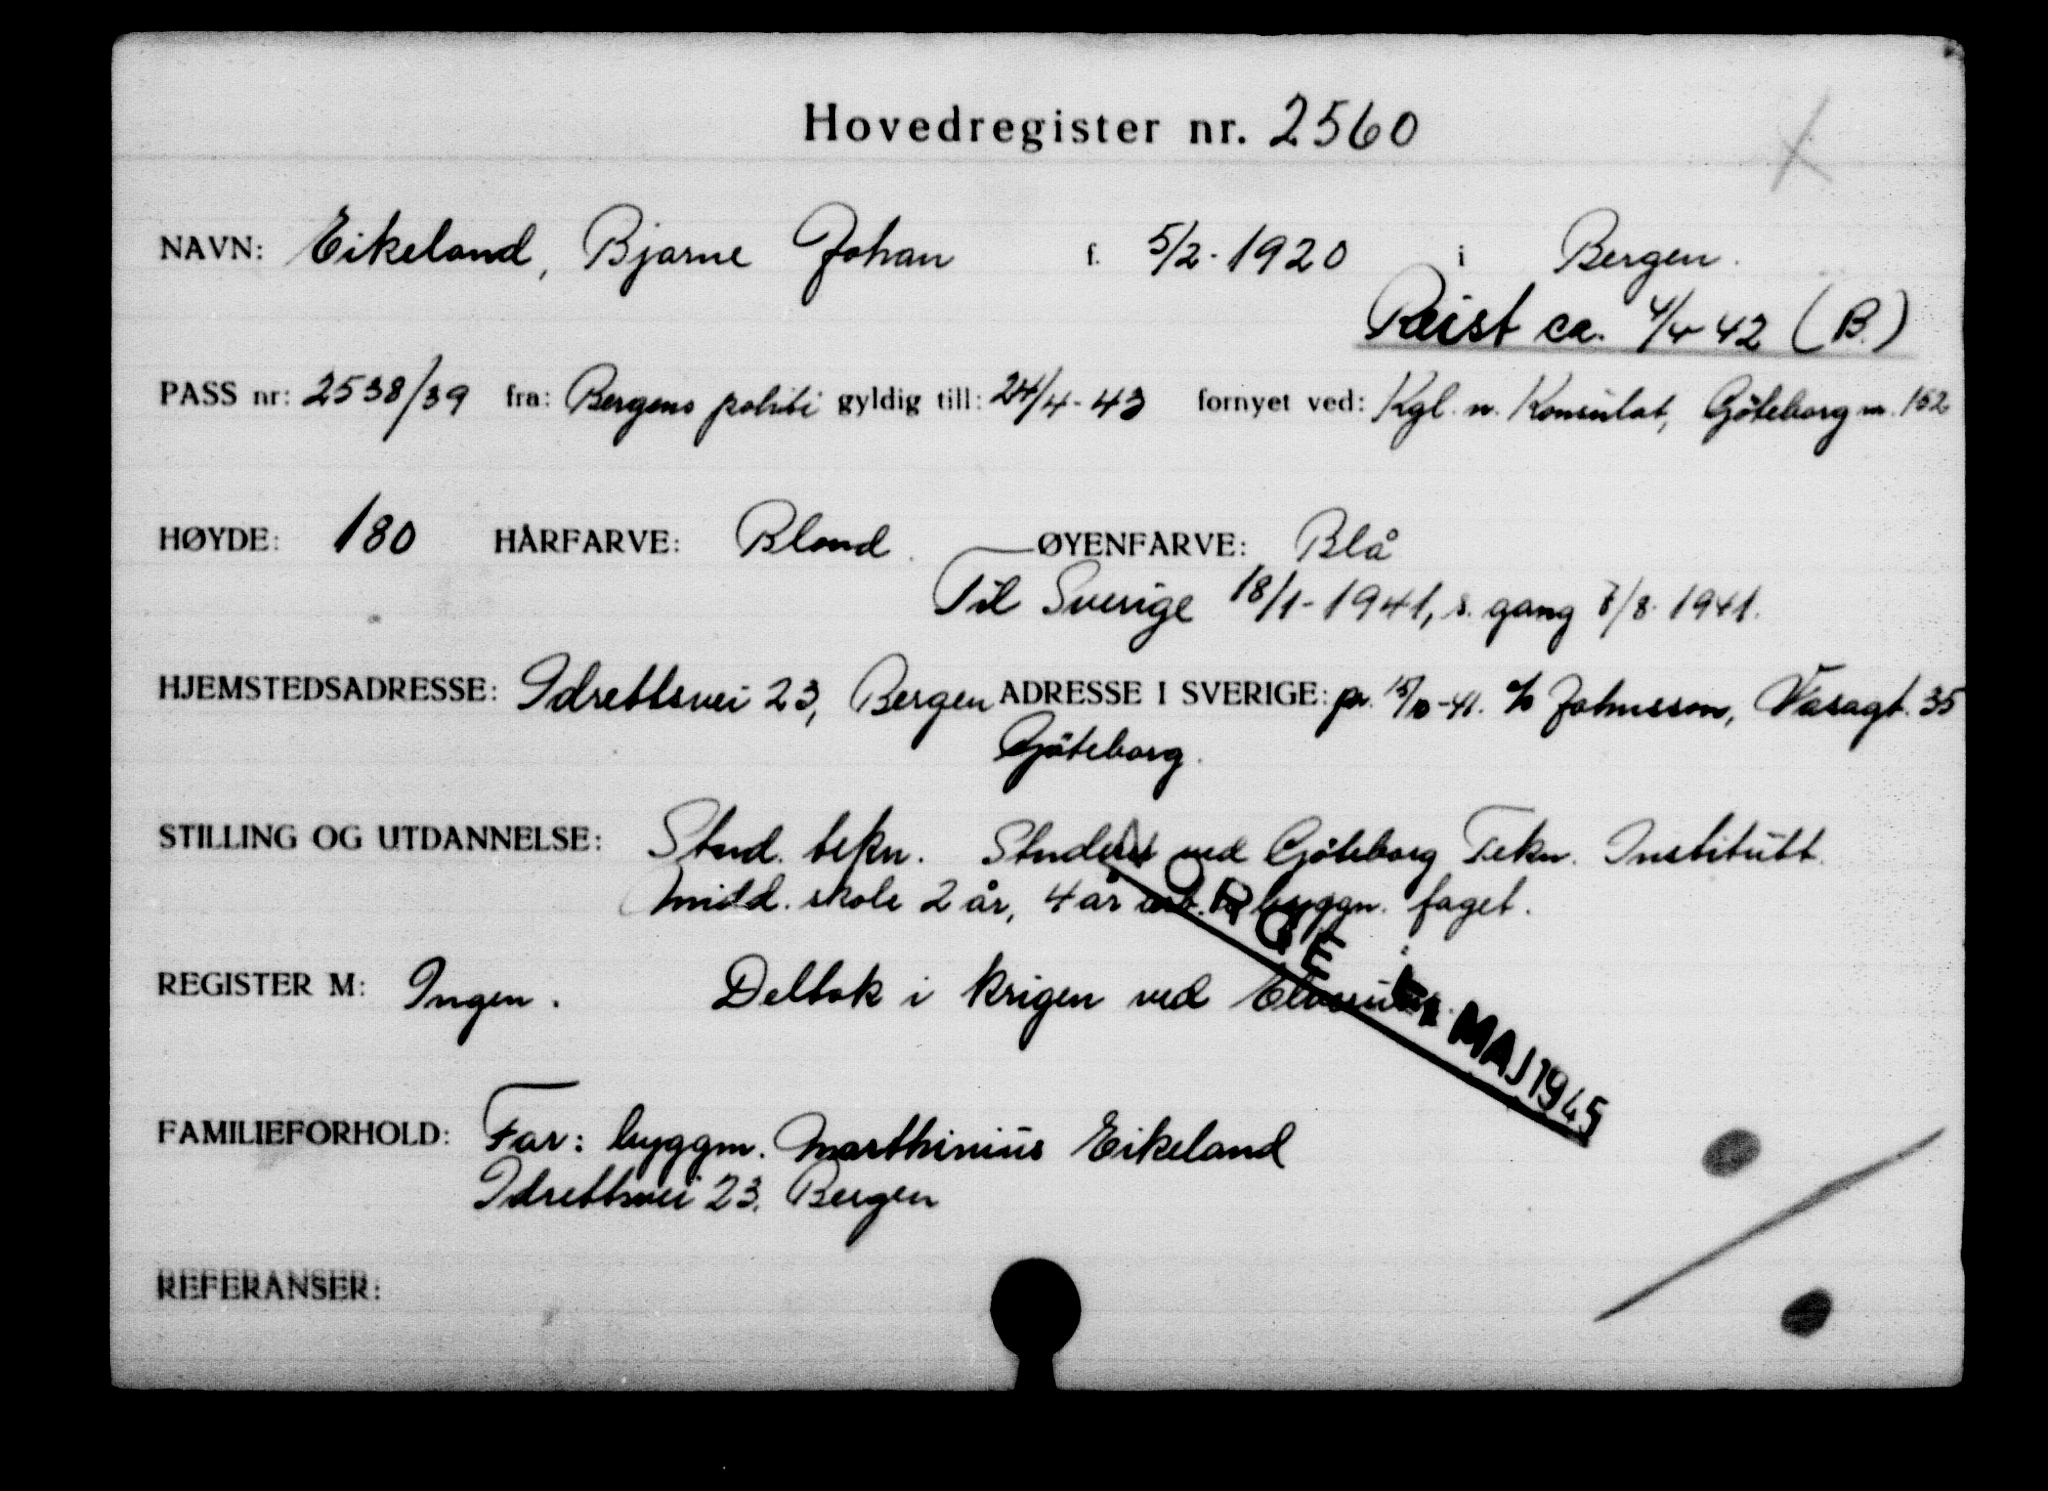 Hovedregister nr. 2560
NAVN: Eikeland, Bjarne Johan f. 5/2-1920 i Bergen.
Reist ca. 4/4-42 (B.)
PASS nr: 2538/39 fra: Bergens politi gyldig till: 24/4-43 fornyet ved: Kgl. n. Konsulat, Göteborg nr. 162
HØYDE: 180 HÅRFARVE: Blond. ØYENFARVE: Blå
Til Sverige 18/1-1941, s. gang 7/8-1941.
HJEMSTEDSADRESSE: Idrettsvei 23, Bergen ADRESSE I SVERIGE: pr. 15/10-41. c/o Johnsson, Vasagt. 35
Göteborg.
STILLING OG UTDANNELSE: Stud. tekn. Student ved Göteborg Tekn. Institutt.
Midd. skole 2 år, 4 år arb. i byggn. faget.
NORGE MAJ 1945
REGISTER M: Ingen. Deltok i krigen ved
FAMILIEFORHOLD: Far: byggm. Marthinius Eikeland
Idrettsvei 23, Bergen
REFERANSER: